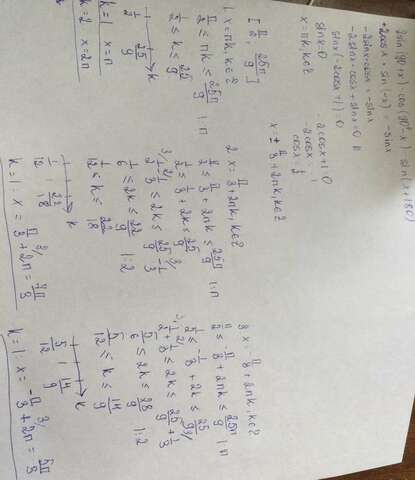 2sin(90+x)·cos(90-x) sin(x+180)
+2cosx·sin(-x) = -sinx
-2sinx·cosx = -sinx
-2sinx·cosx + sinx = 0
sinx(-2cosx+1) = 0
sinx = 0
-2cosx+1=0
2cosx = 1
cosx = 1/2
x = πk, k∈Z
x = ± π/3 + 2πk, k∈Z
[π/2; 25π/9]
1. x = πk, k∈Z
π/2 ≤ πk ≤ 25π/9 |:π
1/2 ≤ k ≤ 25/9
1/2 25/9 k
k=1 x=π
k=2 x=2π
2 x = π/3 + 2πk, k∈Z
π/2 ≤ π/3 + 2πk ≤ 25π/9 |:π
1/2 ≤ 1/3 + 2k ≤ 25/9
1/2 - 1/3 ≤ 2k ≤ 25/9 - 1/3
1/6 ≤ 2k ≤ 22/9 |:2
1/12 ≤ k ≤ 22/18
1/12 1 22/18 k
k=1· x = π/3 + 2π = 7π/3
3 x = -π/3 + 2πk, k∈Z
π/2 ≤ -π/3 + 2πk ≤ 25π/9 |:π
1/2 ≤ -1/3 + 2k ≤ 25/9
1/2 + 1/3 ≤ 2k ≤ 25/9 + 1/3
5/6 ≤ 2k ≤ 28/9 |:2
5/12 ≤ k ≤ 14/9
5/12 1 14/9 k
k=1· x = -π/3 + 2π = 5π/3